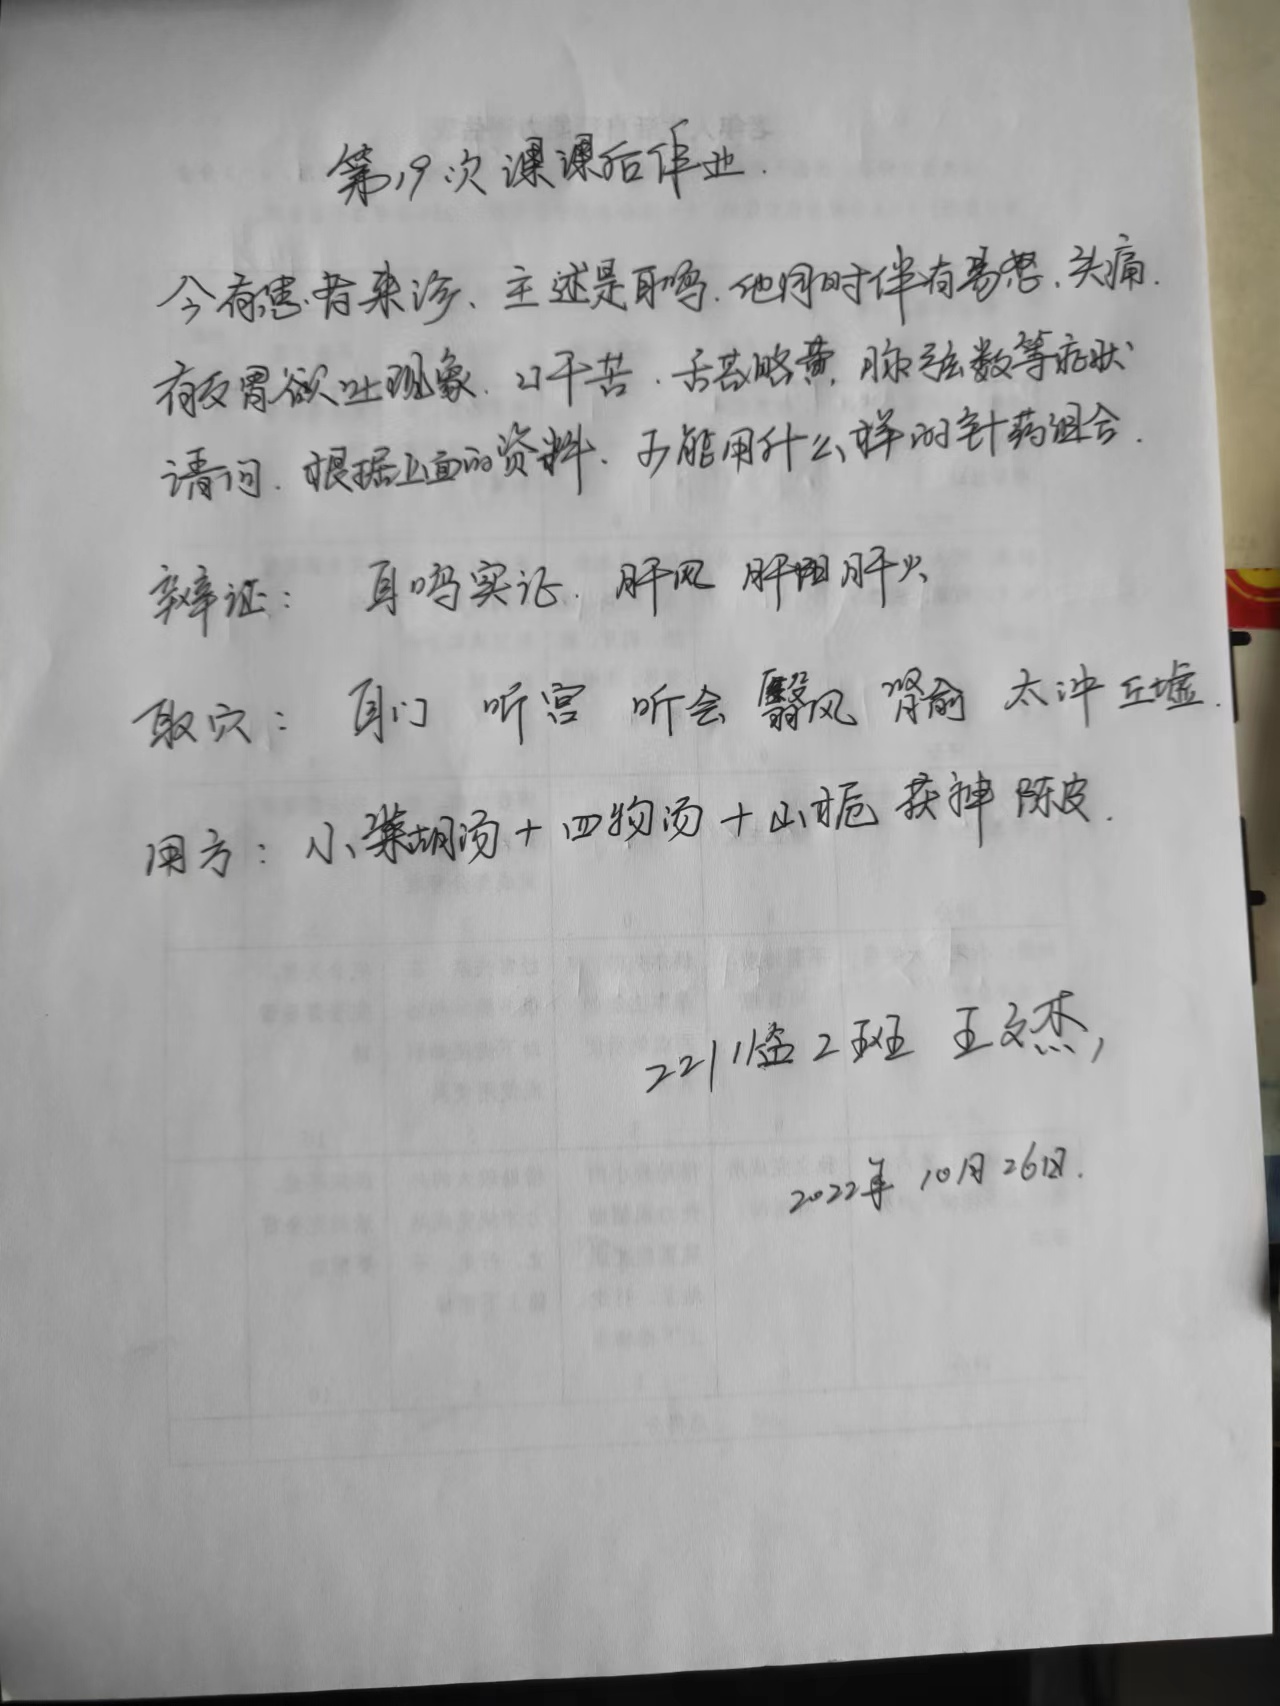 第19次课课后作业.
今有患者来诊、主述是耳鸣.他同时伴有易怒、头痛.
有反胃欲吐现象.口干苦.舌苔略黄,脉弦数等症状
请问.根据上面的资料、可能用什么样的针药组合.
辩证: 耳鸣实证. 肝风 肝阳肝火
取穴: 耳门 听宫 听会 翳风 肾俞 太冲 丘墟.
用方: 小柴胡汤+四物汤+山栀 茯神 陈皮.
2211临2班 王文杰,
2022年10月26日.